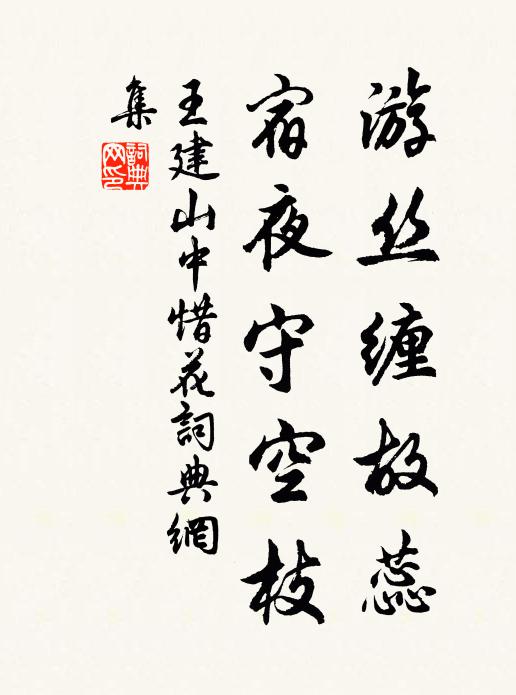 游丝缠故蕊
宿夜守空枝
王建山中惜花詞典網
集
詞典
网印